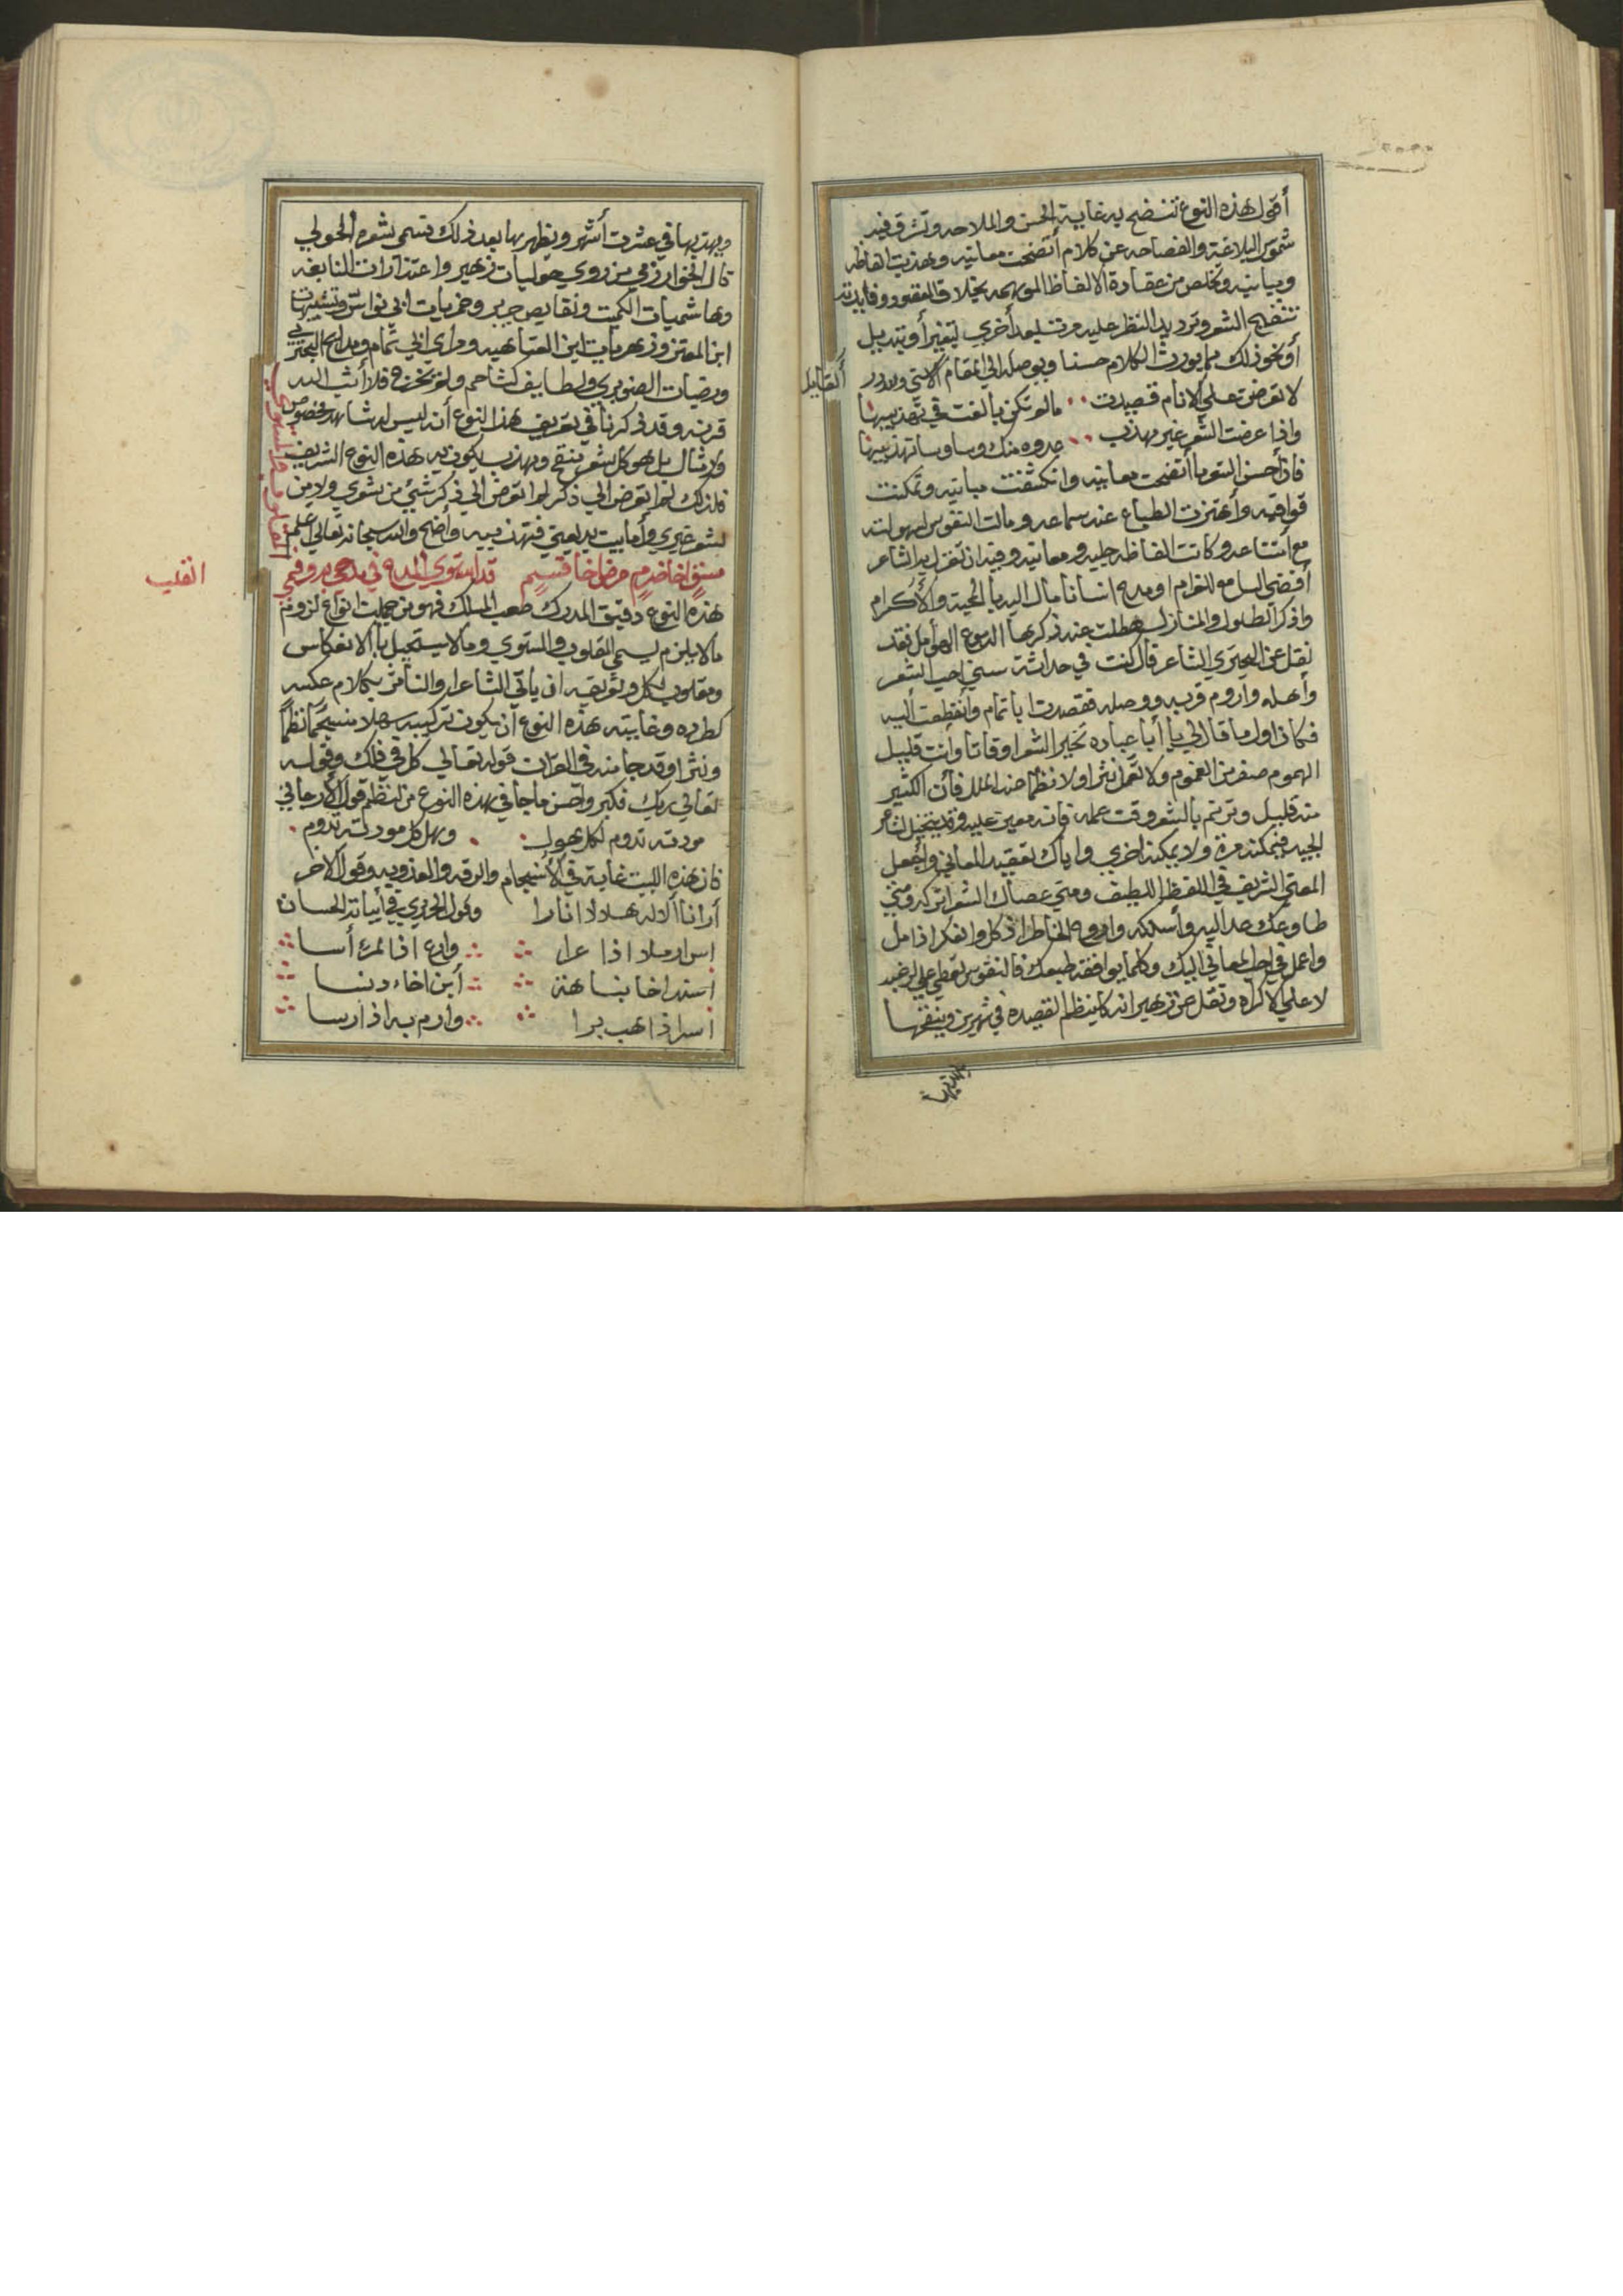 أقول هذه النوع تنضح به غاية الحسن والملاحه وتشرق فيه
شموس البلاغة والفصاحه عن كلام أتضحت معانيه وهذبت الفاظه
ومبانيه وتخلص من عقادة الالفاظ الموهمه بخلاف المقصود وفايدته
تنقيح الشعر وترديد النظر عليه مرة بعد أخرى لتغير أو تبديل
أو نحو ذلك مما يورث الكلام حسنا ويوصله الى المقام الاسنى ولله در
القايل
لا تعرضن على الانام قصيدة ما لم تكن بالغت في تهذيبها
واذا عرضت الشعر غير مهذب عدوه منك وساوسا تهذي بها
فان أحسن الشعر ما أتضحت معانيه وانكشفت مبانيه وتمكنت
قوافيه وأهتزت الطباع عند سماعه ومالت النفوس لسهولته
مع أمتناعه وكانت الفاظه جليه ومعانيه وفيه ان تغزل به الشاعر
أفضى السامع للغرام او مدح انسانا مال اليه بالمحبة والأكرام
واذا ذكر الطلول والمنازل هطلت عند ذكرها الدموع الهوامل فقد
نقل عن البحتري الشاعر قال كنت في حداثة سني احب الشعر
وأهله واروم قربه ووصله فقصدت ابا تمام وأنقطعت أليه
فكان اول ما قال لي يا أبا عباده تخير الشعر اوقاتا وأنت قليل
الهموم صفر من الغموم ولا تعمل نثرا ولا نظما عند الملل فأن الكثير
منه قليل وترنم بالشعر وقت عمله فانه معين عليه وقد
الجيد فيمكنه مرة ولا يمكنه اخرى واياك تعقيد المعاني وأجعل
المعنى الشريف في اللفظ اللطيف ومتى عصاك الشعر اتركه ومتى
طاوعك عد اليه وأسلكه وا روح الخاطر اذا كل والفكر اذا مل
واعمل في احب المعاني اليك وكلما يوافقه طبعك فالنفوس تعطي على الرغبه
لا على الاكراه ونقل عن زهير انه كان ينظم القصيده في شهرين وينقحها
ويهذبها
ويهذبها في عشرت أشهر ويظهرها بعد ذلك فتسمى بشعره الحولي
قال الخوارزمي من روى حوليات زهير واعتذارات النابغه
وهاشميات الكميت ونقايص جرير وخمريات ابي نواس وتشبيهات
ابن المعتز وزهريات ابن العتاهيه ومراثي ابي تمام ومدايح البحتري
وروضيات الصنوبري ولطايف كشاجم ولم يتخرج فلا أشب الله
قرنه وقد ذكرنا في تعريف هذا النوع أنه ليس له شاهد مخصوص
ولا مثال بل هو كل شعر ينقح ويهذب يكون فيه هذه النوع الشريف
فلذلك لم اتعرض الى ذكر شئ من شعري ولا من
شعر غيري وأما بيت بديعتي فتهذيبه واضح والله سبحانه تعالى اعلم
القلب
مسنف اخا ضرم مرض اخا فنسم قد استوى المدح في مدحي به وفمي
هذه النوع دقيق المدرك صعب المسلك فهو من جملت انواع لزوم
مالا يلزم يسمى المقلوب والمستوي ومالا يستحيل با الانعكاس
ومقلوب الكل وتعريفه ان يأتي الشاعر او الناثر بكلام عكسه
كطرده وغايته هذه النوع أن يكون تركيبه سهلا منسجما نظما
ونثرا وقد جا منه في القران قوله تعالى كل في فلك وقوله
تعالى ربك فكبر واحسن ما جا في هذه النوع من النظم قول الأرجاني
مودته تدوم لكل هول وهل كل مودته تدوم
فان هذه البيت غاية في الأنسجام والرقه والعذوبه وقول الاخر
أرانا الاله هلالا انارا وقول الحريري في أبياته الحسان
اس ارملا اذا عرا وارع اذا المرء أسا
اسند اخا نباهة أبن اخاء دنسا
اسر اذا هب برا وارم به اذا رسا